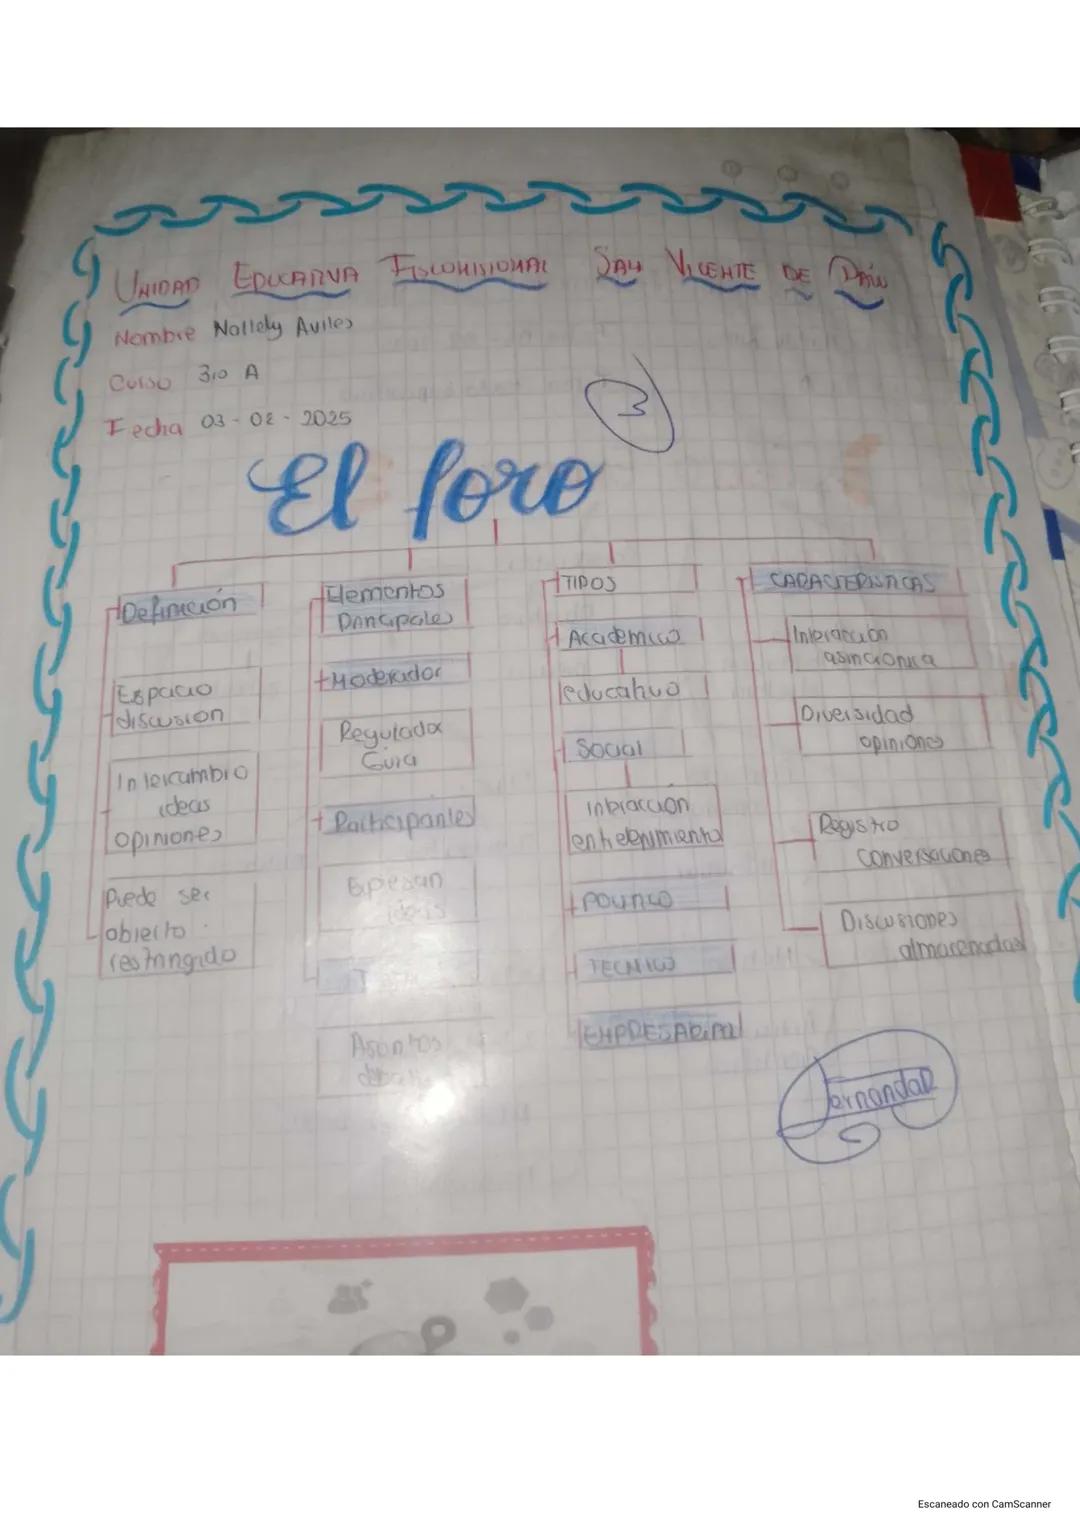 UNIDAD EDUCATIVA FISCOMISIONAL SAN VICENTE DE PAÚL
Nombre Nallely Aviles
Curso 3ro A
Fecha 03-02-2025
3
El foro
Definición
Espacio
discusion
Intercambio
ideas
opiniones
Puede ser
abierto
restringido
Elementos
Principales
Moderador
Regulador
Guia
Participantes
Expresan
ideas
Asuntos
TIPOS
Academico
educativo
Social
Interacción
entretenimiento
POLITICO
TECNICO
EMPRESARIAL
CARACTERISTICAS
Interacción
asincronica
Diversidad
opiniones
Registro
conversaciones
Discusiones
almacenadas
FernandaR
Escaneado con CamScanner